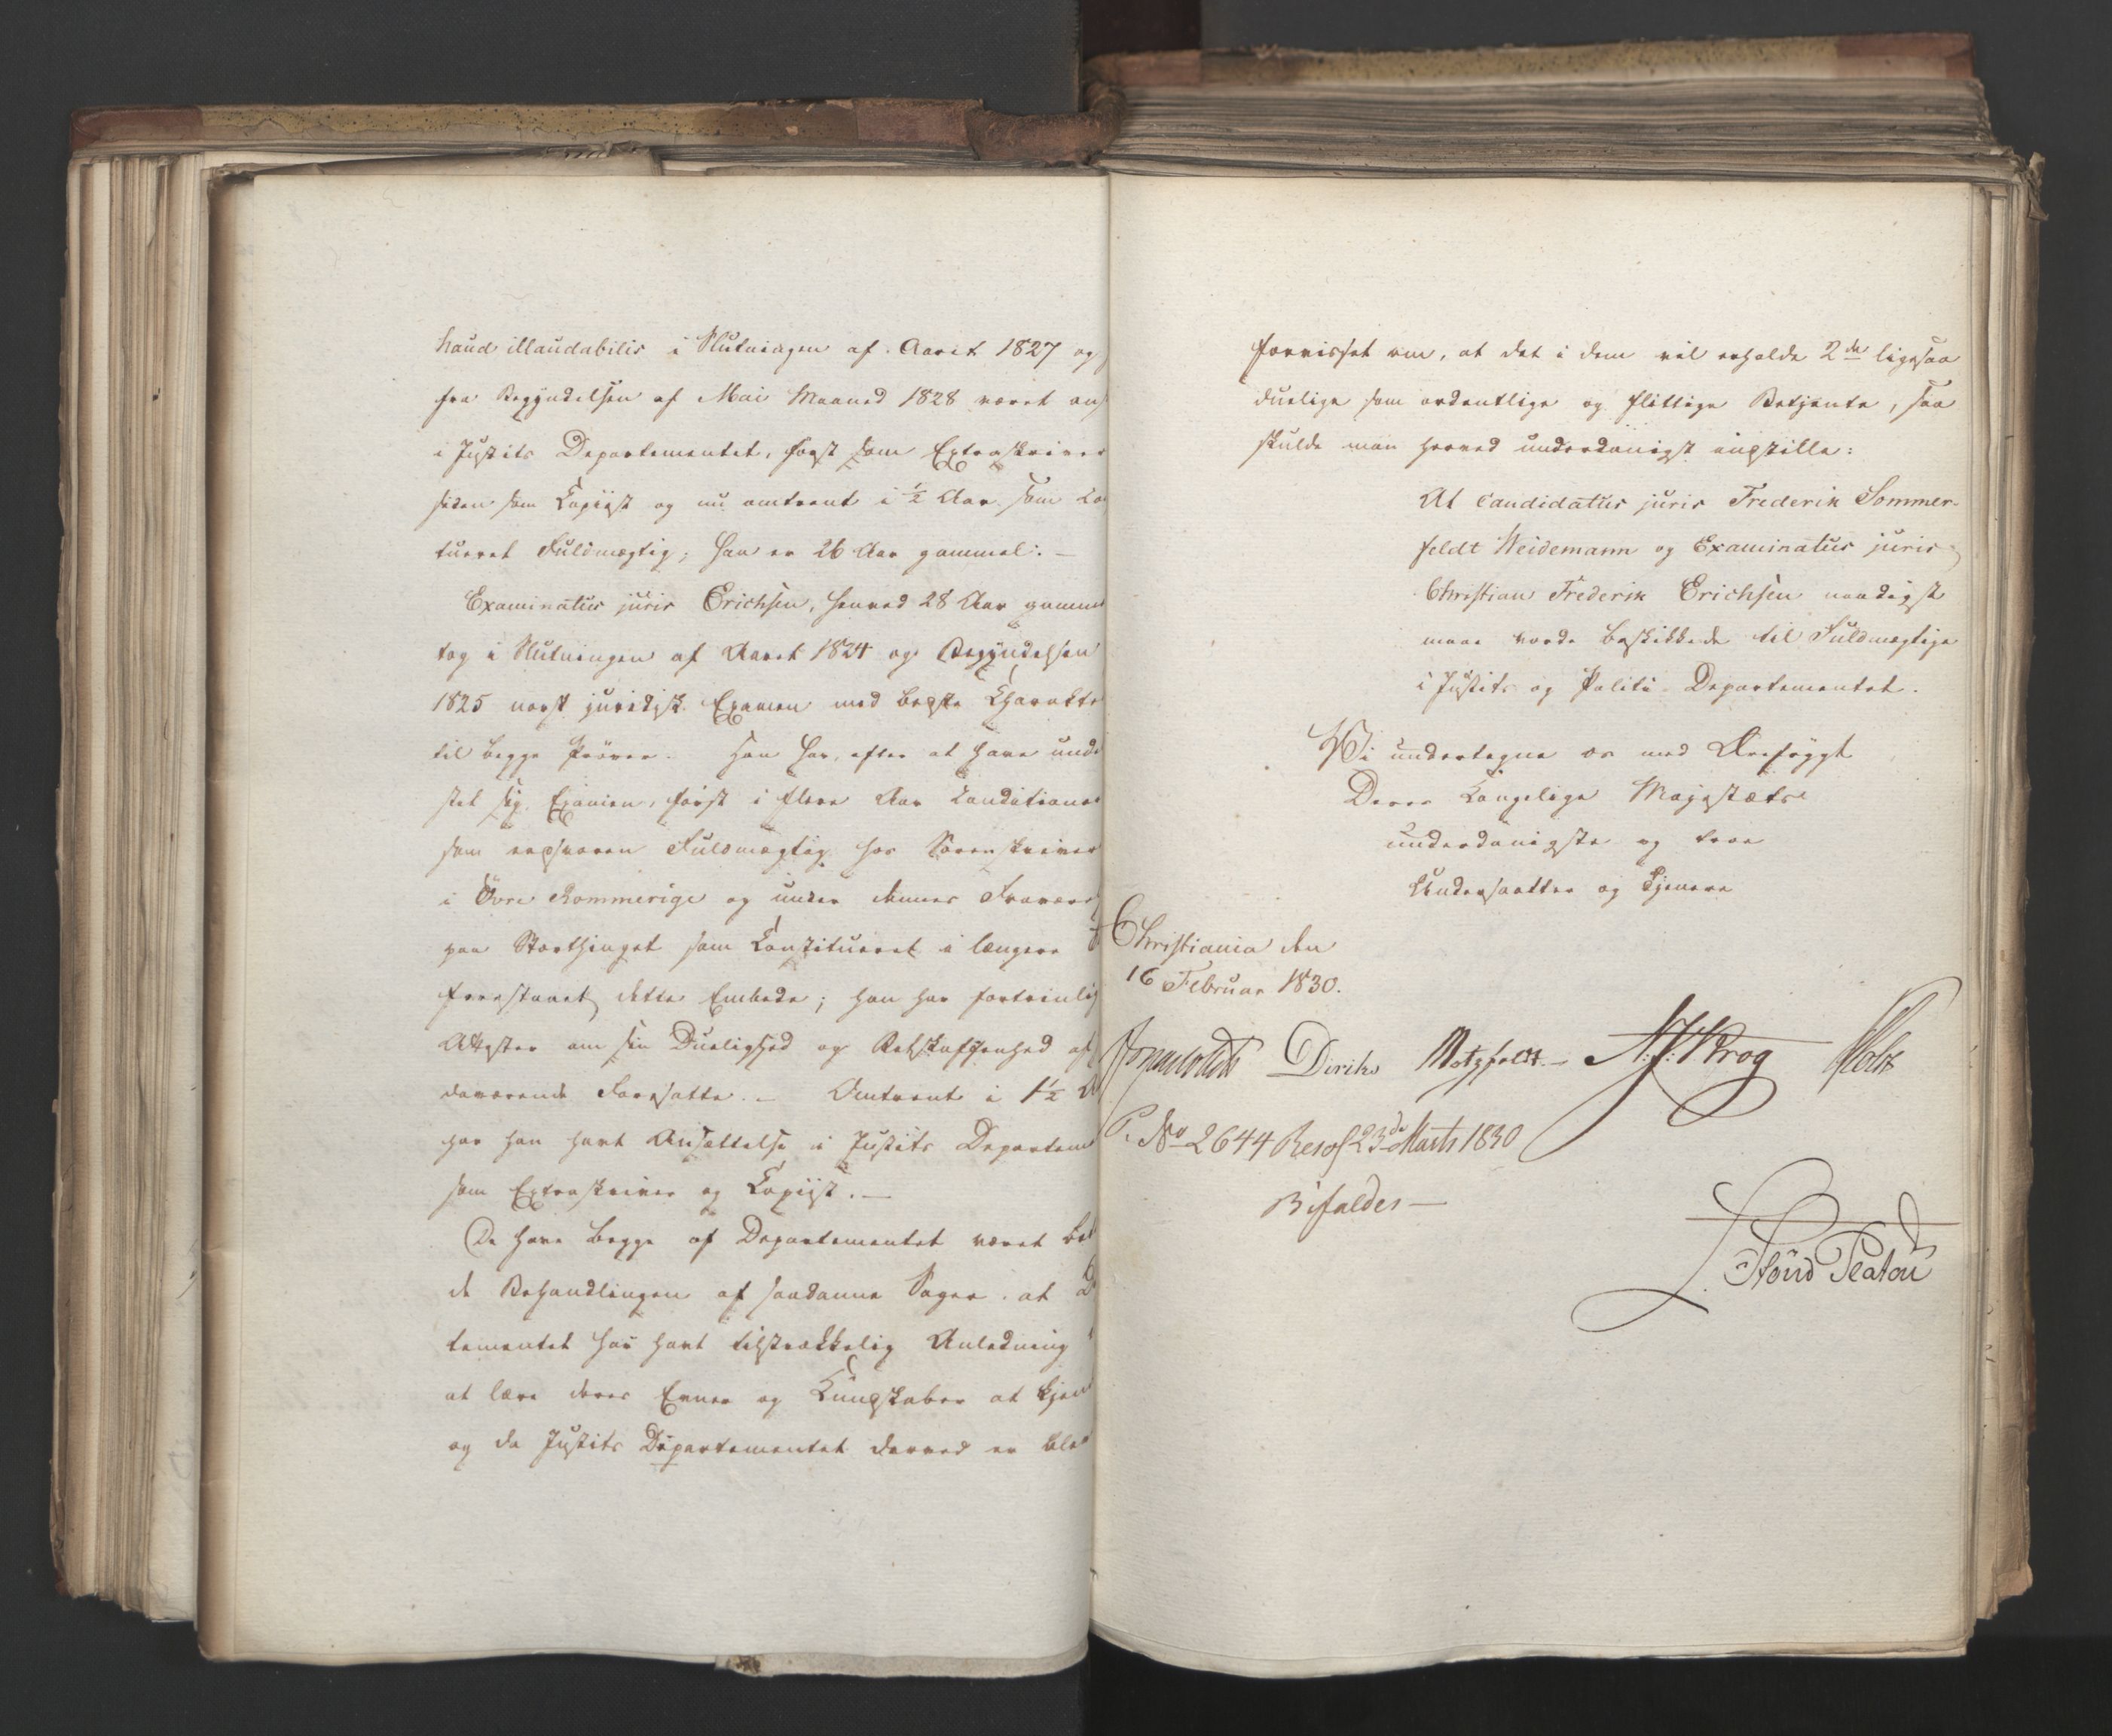 haud illaudabilis i Slutningen af Aaret 1827 og
fra Begyndelsen af Mai Maaned 1828 været an
i Justits Departementet, først som Extraskriver
siden som Copiist og nu omtrent i ½ Aar som Co
tueret Fuldmægtig; han er 26 Aar gammel. —
Examinatus juris Erichsen, henved 28 Aar gamme
tog i Slutningen af Aaret 1824 og Begyndelsen
1825 norsk juridisk Examen med bedste Charakte
til begge Prøver. Han har, efter at have unde
stet sig Examen, først i flere Aar Conditione
som eedsvoren Fuldmægtig hos Sorenskriver
i Övre Rommerige og under dennes Fraværel
paa Storthinget som Constitueret i længere
forestaaet dette Embede; han har fortrinlig
Attester om sin Duelighed og Retskaffenhed af
daværende Foresatte. — Omtrent i 1½ A
har han havt Ansættelse i Justits Departem
som Extraskriver og Copiist. —
De have begge af Departementet været
de Behandlingen af saadanne Sager, at
tementet har havt tilstrækkelig Anledning
at lære deres Evner og Kundskaber at kjen
og da Justits Departementet derved er ble
forvisset om, at det i dem vil erholde 2de ligesaa
duelige som ordentlige og flittige Betjente, saa
skulde man herved underdanigst indstille:
At Candidatus juris Frederik Sommer-
feldt Weidemann og Examinatus juris
Christian Frederik Erichsen naadigst
maae vorde beskikkede til Fuldmægtige
i Justits og Politi-Departementet.
Vi undertegne os med Ærefrygt
Deres Kongelige Majestæts
underdanigste og troe
Undersaatter og Tjenere
Christiania den
16 Februar 1830.
Diriks Motzfeldt — N. J. Krog Holst
P. No 2644 Resol 23de Marts 1830
Bifaldes —
Stoud Platou